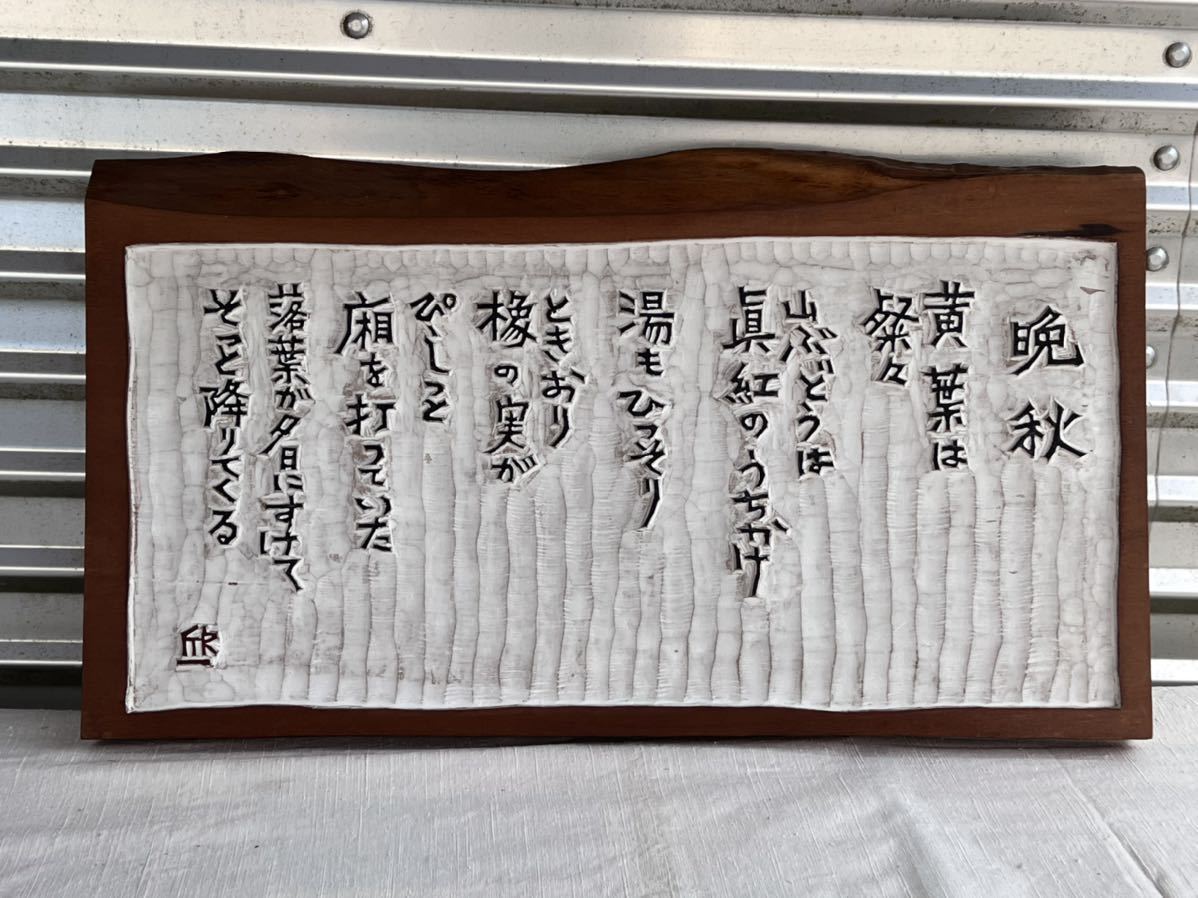 晩秋
黄葉は
粲々
山ぶどうは
眞紅のうちかけ
湯もひっそり
ときおり
橡の実が
ぴしっと
廂を打っていた
落葉が夕日にすけて
そっと降りてくる